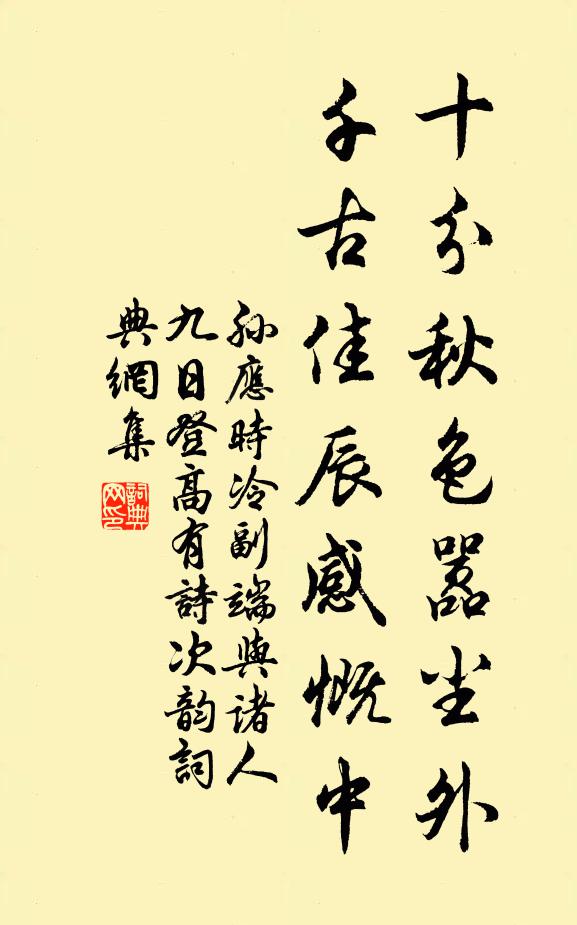 十分秋色囂尘外
千古佳辰感慨中
孫應時冷副端與諸人
九日登高有詩次韵詞
典網集
詞典
网印